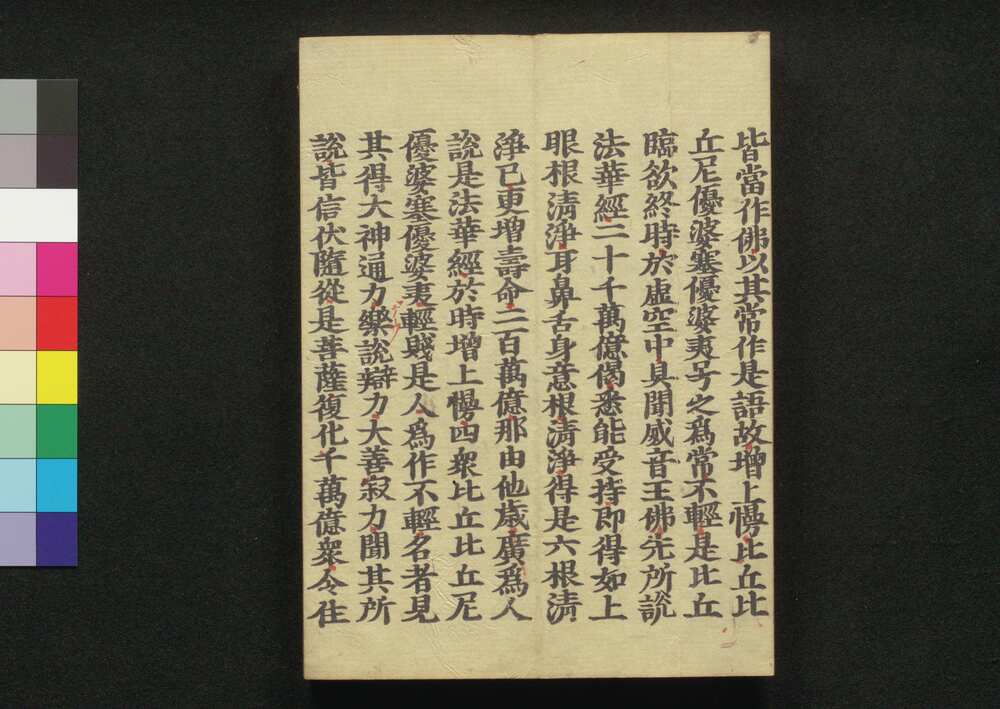 皆當作佛以其常作是語故增上慢比丘比
丘尼優婆塞優婆夷号之爲常不輕是比丘
臨欲終時於虛空中具聞威音王佛先所說
法華經二十千萬億偈悉能受持即得如上
眼根清淨耳鼻舌身意根清淨得是六根清
淨已更增壽命二百萬億那由他歲廣爲人
說是法華經於時增上慢四衆比丘比丘尼
優婆塞優婆夷輕賤是人爲作不輕名者見
其得大神通力樂說辯力大善寂力聞其所
說皆信伏隨從是菩薩復化千萬億衆令住